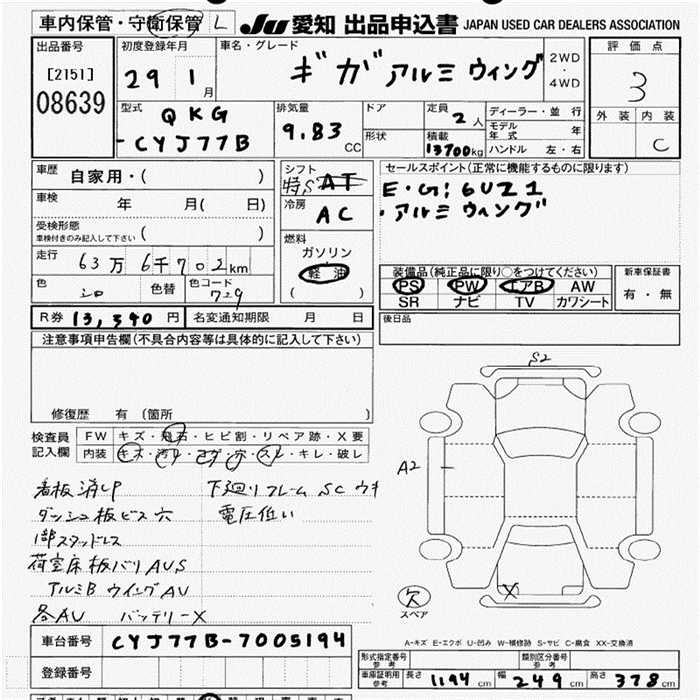 車内保管・守衛保管 L JU 愛知 出品申込書 JAPAN USED CAR DEALERS ASSOCIATION
出品番号
[2151]
08639
初度登録年月
29 1月
車名・グレード
ギガ アルミ ウィング
2WD
・
4WD
評価点
3
外装 内装
C
型式
QKG
-CYJ77B
排気量
9.83 CC
ドア
形状
定員 2人
積載
13700kg
ディーラー・並行
モデル年式 年
ハンドル 左・右
車歴 自家用・( )
車検 年 月( 日)
受検形態
車検付きのみ記入して下さい ( )
走行 63万6千702km
色 シロ 色替 色コード 729
シフト
特S AT
冷房
AC
燃料
ガソリン
軽油
( )
セールスポイント(正常に機能するものに限ります)
E・G:6UZ1
・アルミ ウィング
装備品(純正品に限り○をつけてください)
PS PW エアB AW
SR ナビ TV カワシート
新車保証書
有・無
R券 13,340円 名変通知期限 月 日
後日品
注意事項申告欄(不具合内容等は具体的に記入して下さい)
修復歴 有 (箇所 )
検査員
記入欄
FW キズ・飛石・ヒビ割・リペア跡・X要
内装 キズ・汚レ・コゲ・穴・スレ・キレ・破レ
看板消し 下廻りフレーム SC ウキ
ダッシュ板ビス穴 電圧低い
1部スタッドレス
荷室床板バリ AUS
アルミB ウイングAU
各AU バッテリーX
S2
A2
X
欠
スペア
A-キズ E-エクボ U-凹み W-補修跡 S-サビ C-腐食 XX-交換済
車台番号 CYJ77B-7005194
登録番号
型式指定番号
参考
類別区分番号
参考
車庫証明用
参考
長さ 1194cm 幅 249cm 高さ 378cm